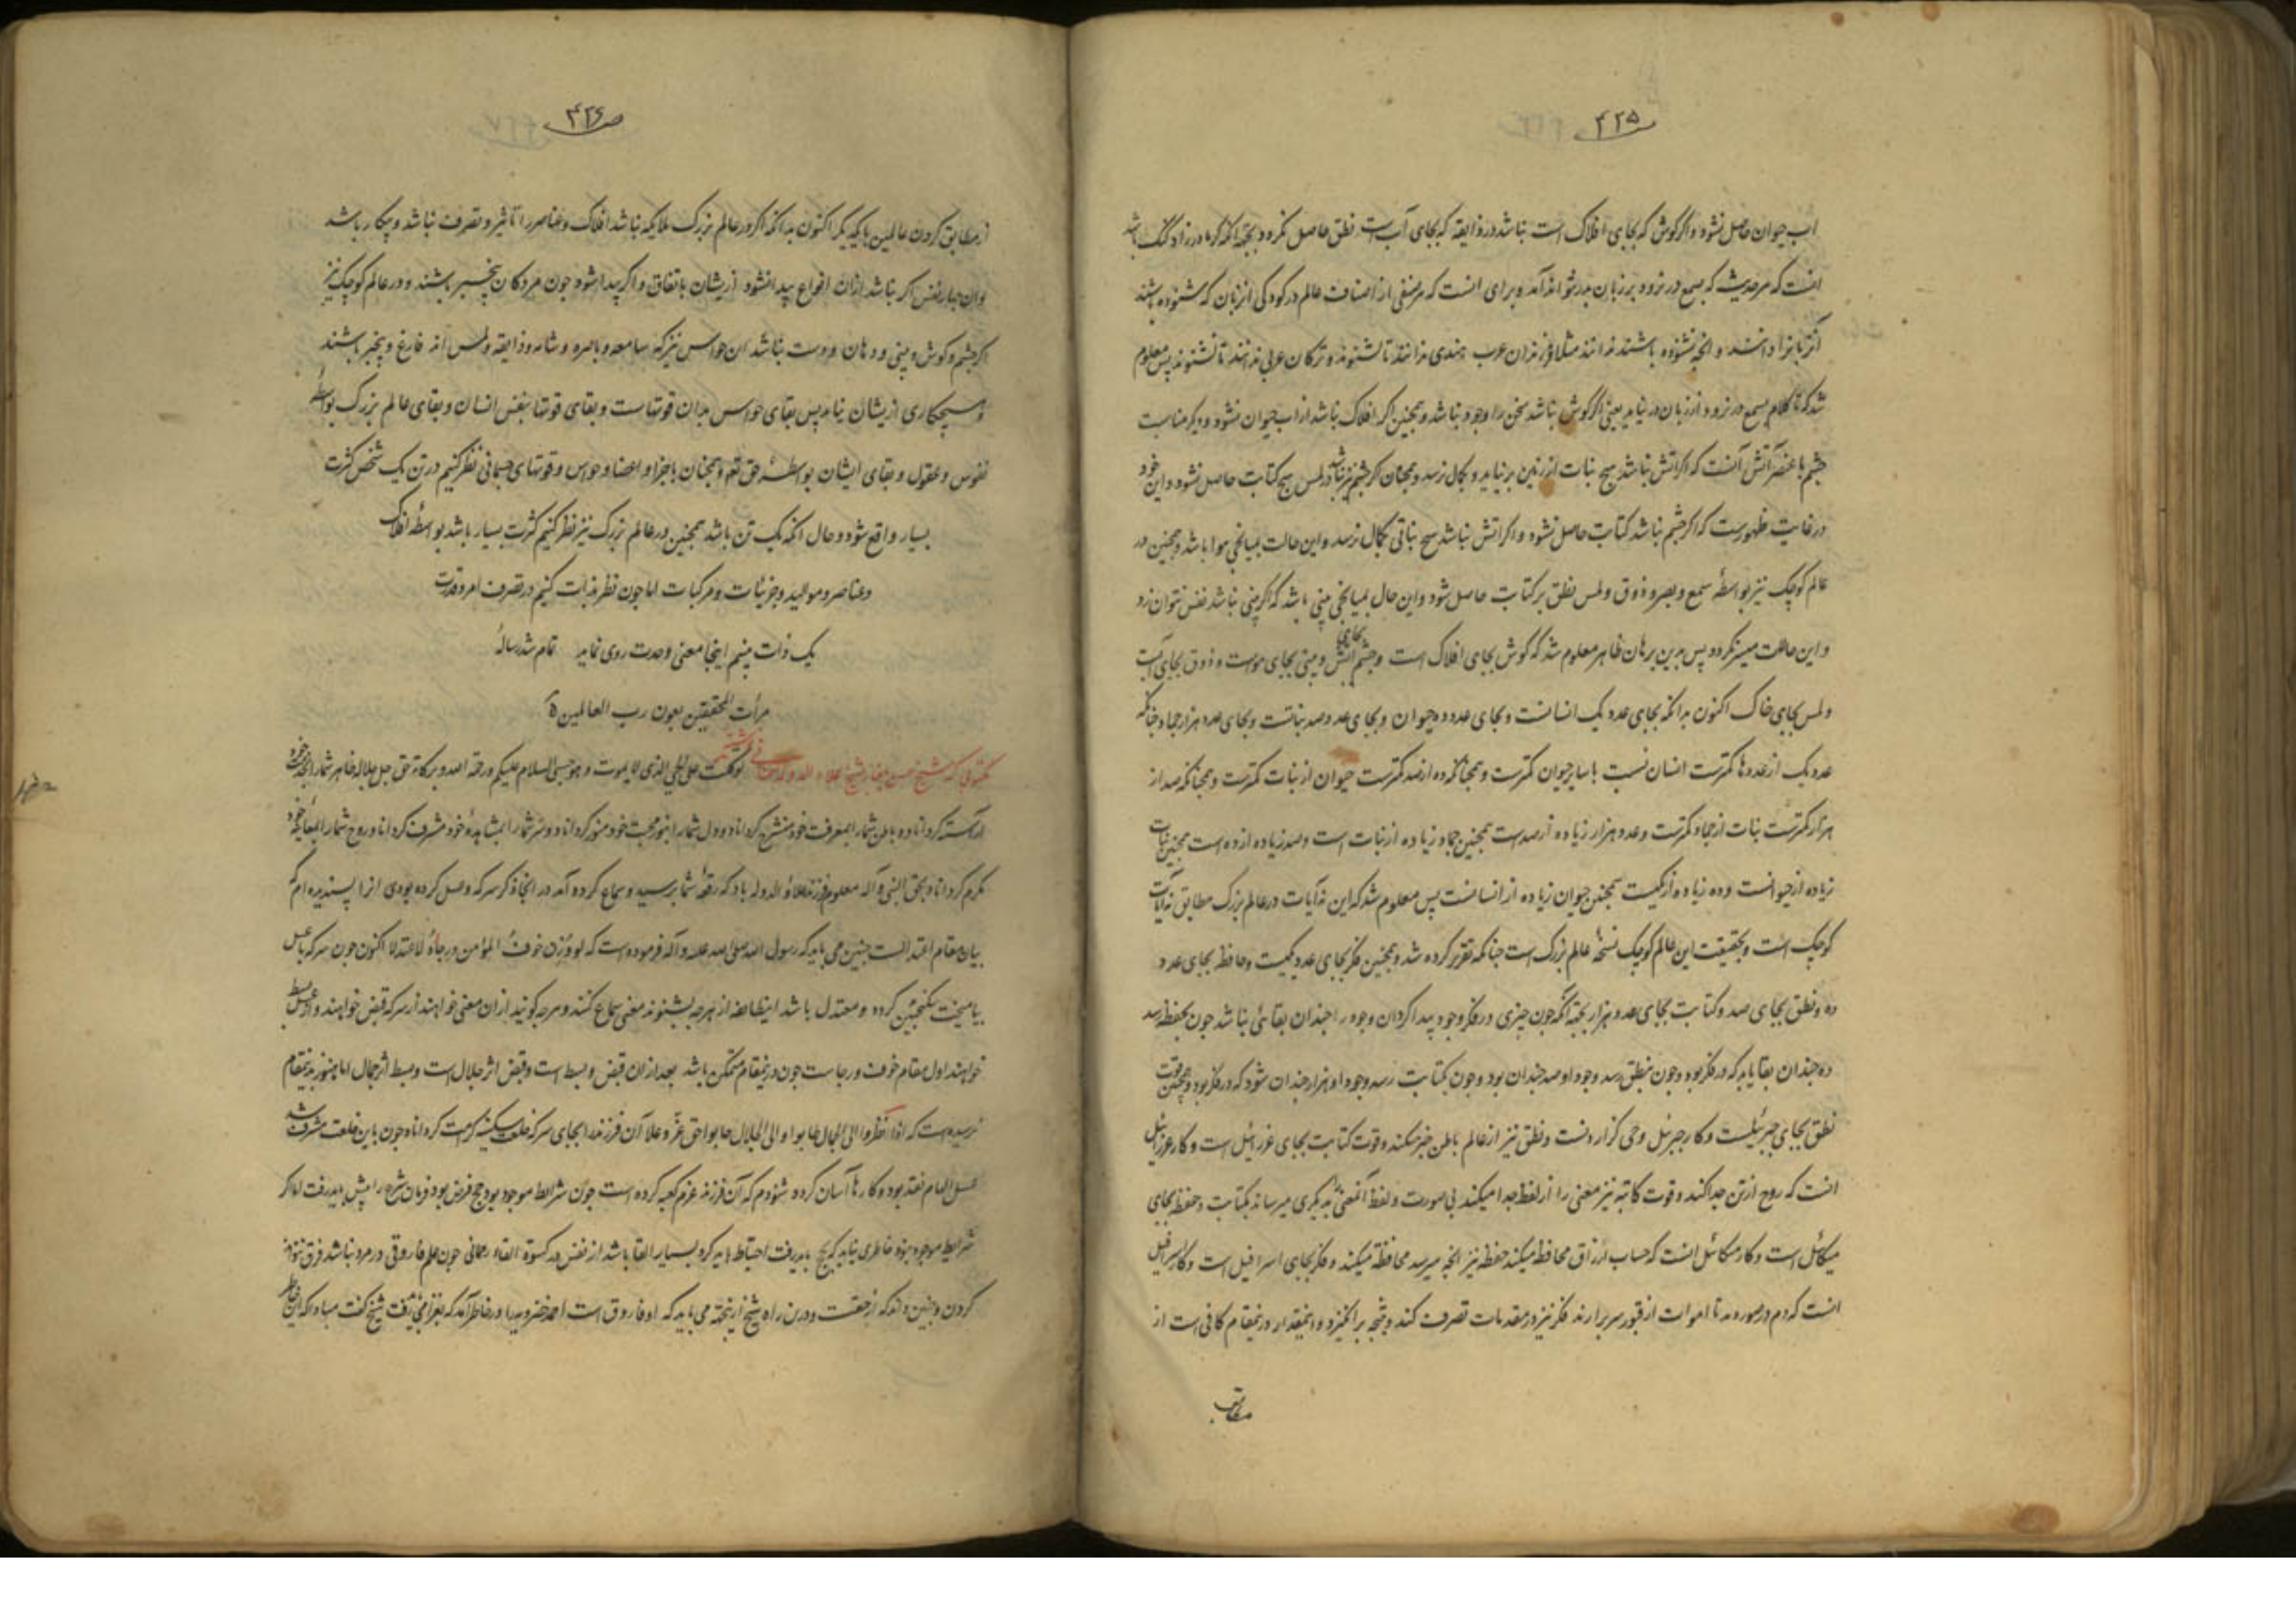 ۴۲۵
اب حیوان حاصل نشود واگر گوش که بجای افلاک است نباشد در ذایقه که بجای آب است نطق حاصل نکردد بجهة انکه کر مادرزاد گنگ باشد
انست که هر حدیث که بسمع در نرود بر زبان بدر نتواند آمد و برای انست که هر صنفی از اصناف عالم در کودکی از زبان که شنوده باشند
آن زبانرا دانند و انچه نشنوده باشند ندانند مثلا فرزندان عرب هندی ندانند تا نشنوند و ترکان عربی ندانند تا نشنوند پس معلوم
شد که تا کلام بسمع در نرود از زبان در نیاید یعنی اگر گوش نباشد سخن را وجود نباشد و همچنین اگر افلاک نباشد از اب حیوان نشود و دیگر مناسبت
چشم با عنصر آتش آنست که اگر اتش نباشد هیچ نبات از زمین بر نیاید و بکمال نرسد و همچنان اگر چشم نیز نباشد در لمس هیچ کتابت حاصل نشود و این خود
در غایت ظهورست که اگر چشم نباشد کتابت حاصل نشود و اگر اتش نباشد هیچ نباتی بکمال نرسد و این حالت بمیانجی هوا باشد و همچنین در
عالم کوچک نیز بواسطهٔ سمع و بصر و ذوق و لمس نطق بر کتابت حاصل شود و این حال بمیانجی بینی باشد که اگر بینی نباشد نفس نتوان زد
و این حالت میسر نکردد پس بدین برهان ظاهر معلوم شد که گوش بجای افلاک است و چشم بجای اتش و بینی بجای هواست و ذوق بجای آبست
و لمس بجای خاک اکنون بدانکه بجای عدد یک انسانست و بجای عدد ده حیوان و بجای عدد صد نباتست و بجای عدد هزار جماد چنانکه
عدد یک از عددها کمترست انسان نسبت با سایر حیوان کمترست و همچنانکه ده از صد کمترست حیوان از نبات کمترست و همچنانکه صد از
هزار کمترست نبات از جماد کمترست و عدد هزار زیاده از صدست همچنین جماد زیاده از نبات است و صد زیاده از ده است همچنین نبات
زیاده از حیوانست و ده زیاده از یکیست همچنین حیوان زیاده از انسانست پس معلوم شد که این نه آیات در عالم بزرگ مطابق نه آیات
کوچک است و بحقیقت این عالم کوچک نسخهٔ عالم بزرگ است چنانکه تقریر کرده شد و همچنین فکر بجای عدد یکیست و حافظه بجای عدد
ده و نطق بجای صد و کتابت بجای عدد هزار بجهة آنکه چون چیزی در فکر وجود پیدا کردان وجود را چندان بقائی نباشد چون بحفظ رسد
ده چندان بقا یابد که در فکر بود و چون بنطق رسد وجود او صد چندان بود و چون بکتابت رسد وجود او هزار چندان شود که در فکر بود و همچنین قوت
نطق بجای جبرئیلست و کار جبرئیل وحی گزاردنست و نطق نیز از عالم باطن خبر میکند و قوت کتابت بجای عزرائیل است و کار عزرائیل
انست که روح از تن جدا کند و قوت کاتبه نیز معنی را از لفظ جدا میکند بی صورت و لفظ آنمعنی بدیگری میرساند بکتابت و حفظ بجای
میکائیل است و کار میکائیل انست که حساب ارزاق محافظه میکند حفظ نیز انچه میرسد محافظة میکند و فکر بجای اسرافیل است و کار اسرافیل
انست که دم در صور دمد تا اموات از قبور سر برارند فکر نیز در مقدمات تصرف کند و نتیجه بر انگیزد و اینمقدار درینمقام کافی است از
مطابق
۴۲۶
از مطابق کردن عالمین با یکدیگر اکنون بدانکه اگر در عالم بزرگ ملایکه نباشد افلاک و عناصر را تاثیر و تصرف نباشد و بیکار باشد
و ان چهار نفس اگر نباشد ازان انواع پیدا نشود ازیشان باتفاق و اگر پیدا شود چون مردکان بیخبر باشند و در عالم کوچک نیز
اگر چشم و کوش و بینی و دهان و دست نباشد ان حواس نیز که سامعه و باصره و شامه و ذایقه و لمس اند فارغ و بیخبر باشند
و هیچکاری ازیشان نیاید پس بقای حواس بدان قوتهاست و بقای قوتها بنفس انسان و بقای عالم بزرگ بواسطهٔ
نفوس و عقول و بقای ایشان بواسطهٔ حق تعم و همچنان باجزا و اعضا و حواس و قوتهای جسمانی نظر کنیم در تن یک شخص کثرت
بسیار واقع شود و حال انکه یک تن باشد همچنین در عالم بزرگ نیز نظر کنیم کثرت بسیار باشد بواسطهٔ افلاک
و عناصر و موالید و جزئیات و مرکبات اما چون نظر بذات کنیم در تصرف امر و قدرت
یک ذات بینیم اینجا معنی وحدت روی نماید تمام شد رسالهٔ
مرأت المحققین بعون رب العالمین
مکتوبی که شیخ حسن بلغار شیخ علاء الدوله نوشته توکلت علی الحی الذی لا یموت و هو حسبی السلام علیکم و رحمة الله و برکاته حق جل جلاله ظاهر شما را بخدمت خود
اراسته کرداناد و باطن شما را بمعرفت خود منشرح کرداناد و دل شما را بنور محبت خود منور کرداناد و سر شما را بمشاهدهٔ خود مشرف کرداناد و روح شما را بمعاینهٔ خود
مکرم کرداناد بحق النبی و آله معلوم فرزند علاؤ الدوله باد که رقعهٔ شما برسید و سماع کرده آمد در انجا ذکر سرکه و عسل کرده بودی انرا پسندیده ام که
بیان مقام اعتدالست چنین می باید که رسول الله صلی الله علیه و آله فرموده است که لو وُزِن خوفُ المؤمن و رجاؤُه لاعتدلا اکنون چون سرکه با عسل
بیامیخت سکنجبین کرده و معتدل باشد اینطایفه از هرچه بشنوند معنی سماع کنند و سرچه کویند ازان معنی خواهند از سرکه قبض خواهند و از عسل بسط
خواهند اول مقام خوف و رجاست چون درینمقام متمکن باشد بعد ازان قبض و بسط است و قبض اثر جلال است و بسط اثر جمال اما هنوز بدینمقام
نرسیده است که اذا نظروا الی الجمال طابوا و الی الجلال هابوا حق عَزّ و علا آن فرزند را بجای سرکه خلعت سکینه کرامت کرداناد چون باین خلعت مشرف شد
عسل الهام نقد بود و کارها آسان کردد شنودم که آن فرزند عزم کعبه کرده است چون شرایط موجود بود حج فرض بود فرمان شرع را پیش باید رفت اما اگر
شرایط موجود نبود خاطری نیاید که بحج باید رفت احتیاط باید کرد بسیار القا باشد از نفس در کسوة القاء رحمانی چون علم فاروقی در مرد نباشد فرق نتواند
کردن و چنین داند که از حقست و درین راه شیخ از پخته می باید که او فاروق است احمد خضرویه را در خاطر آمد که بغزا می باید رفت شیخ گفت مبادا که این خاطر